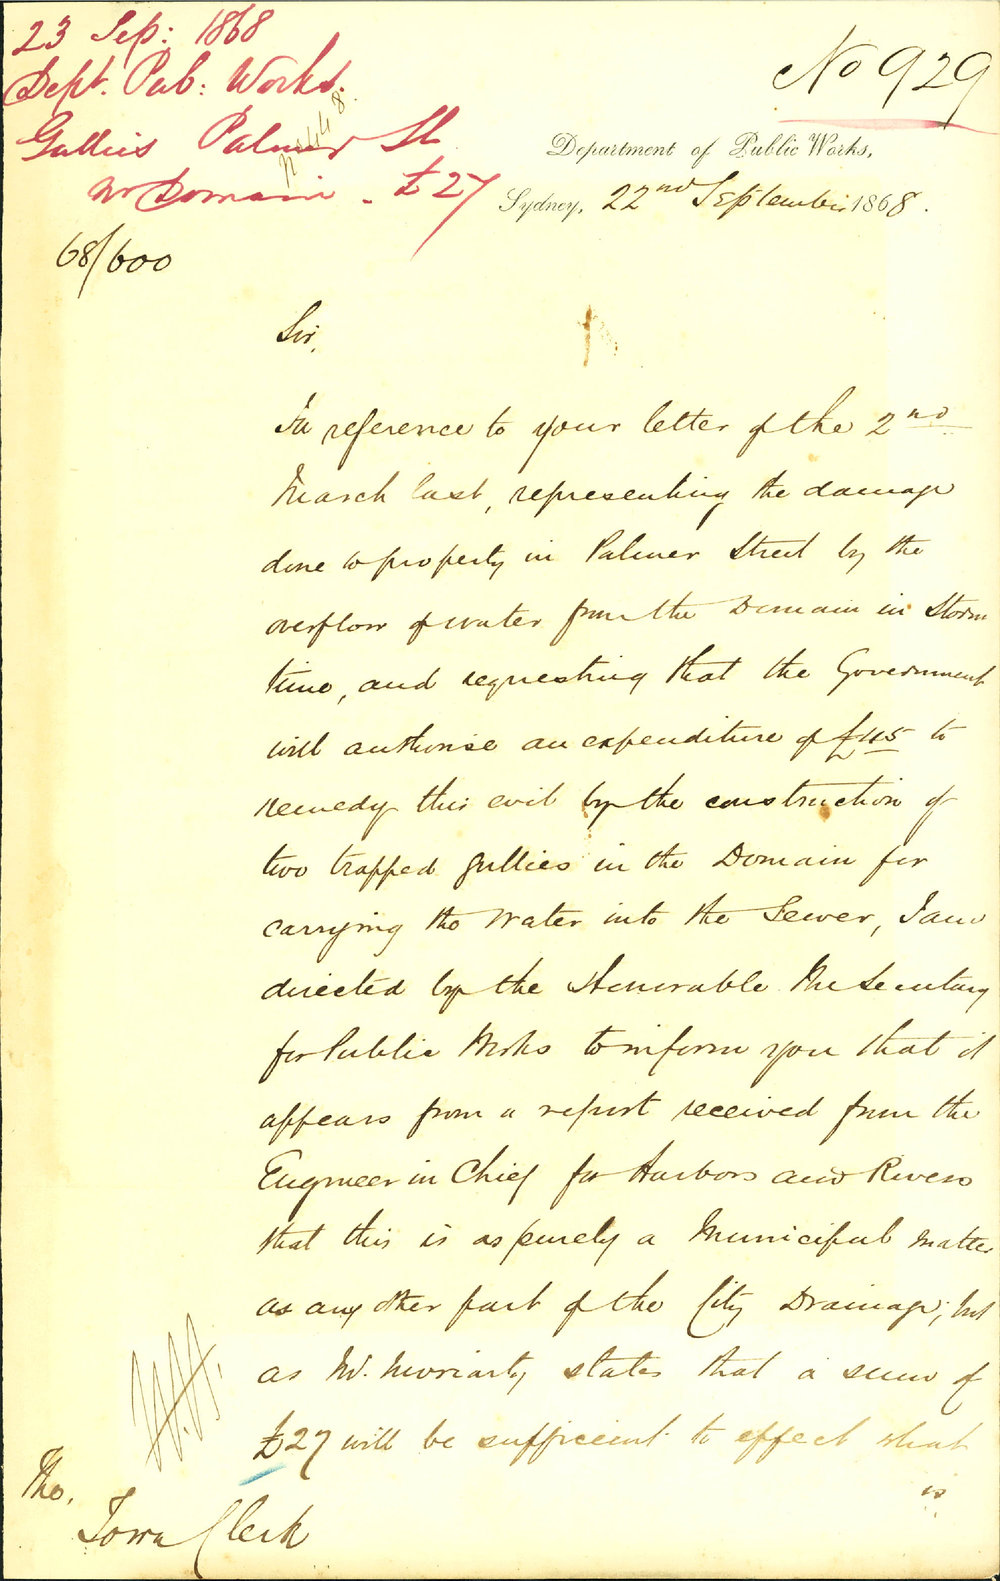 23 Sep: 1868
Dept. Pub: Works.
Gullies Palmer St
nr Domain - £27
No 929
Department of Public Works,
Sydney, 22nd September 1868.
68/600
Sir,
In reference to your letter of the 2nd
March last, representing the damage
done to property in Palmer Street by the
overflow of water from the Domain in Storm
time, and requesting that the Government
will authorise an expenditure of £45 to
remedy this evil by the construction of
two trapped gullies in the Domain for
carrying the water into the Sewer, I am
directed by the Honorable The Secretary
for Public Works to inform you that it
appears from a report received from the
Engineer in Chief for Harbors and Rivers
that this is as purely a Municipal matter
as any other part of the City Drainage; but
as Mr. Moriarty states that a sum of
£27 will be sufficient to effect what
is
The.
Town Clerk